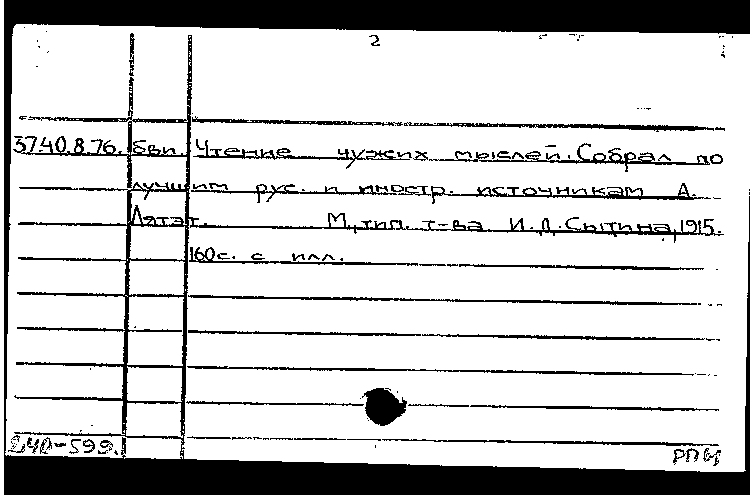 2
37.40.8.76. бви. Чтение чужих мыслей. Собрал по
лучшим рус. и иностр. источникам А.
Лятат. М., тип. т-ва И.Д. Сытина, 1915.
160с. с илл.
240-599.